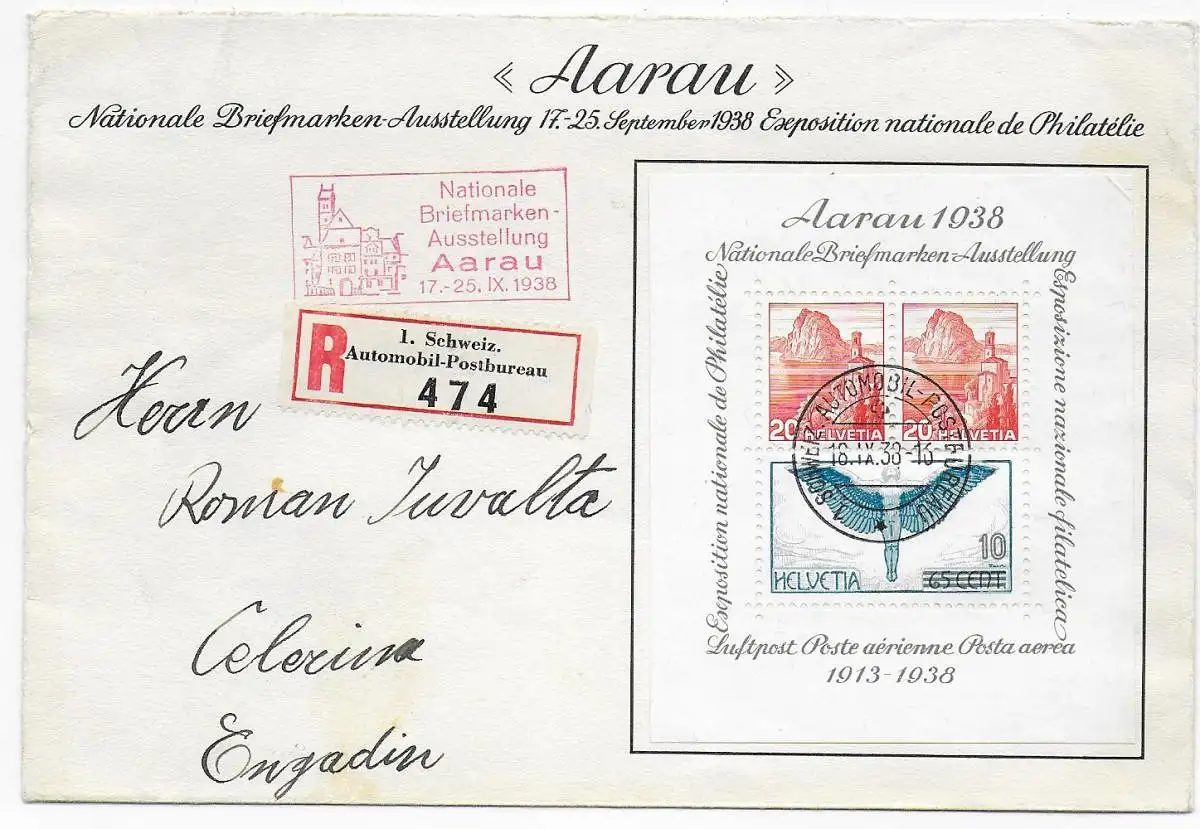 « Aarau »
Nationale Briefmarken-Ausstellung 17.-25. September 1938 Exposition nationale de Philatélie
Nationale
Briefmarken-
Ausstellung
Aarau
17.-25. IX. 1938
R
1. Schweiz.
Automobil-Postbureau
474
Herrn
Roman Juvalta
Celerina
Engadin
Aarau 1938
Nationale Briefmarken-Ausstellung
Exposition nationale de Philatélie
Esposizione nazionale filatelica
20 HELVETIA
20 HELVETIA
1. SCHWEIZ. AUTOMOBIL-POSTBUREAU
18.IX.38-16
10
HELVETIA
65 CENT
Luftpost Poste aérienne Posta aerea
1913-1938